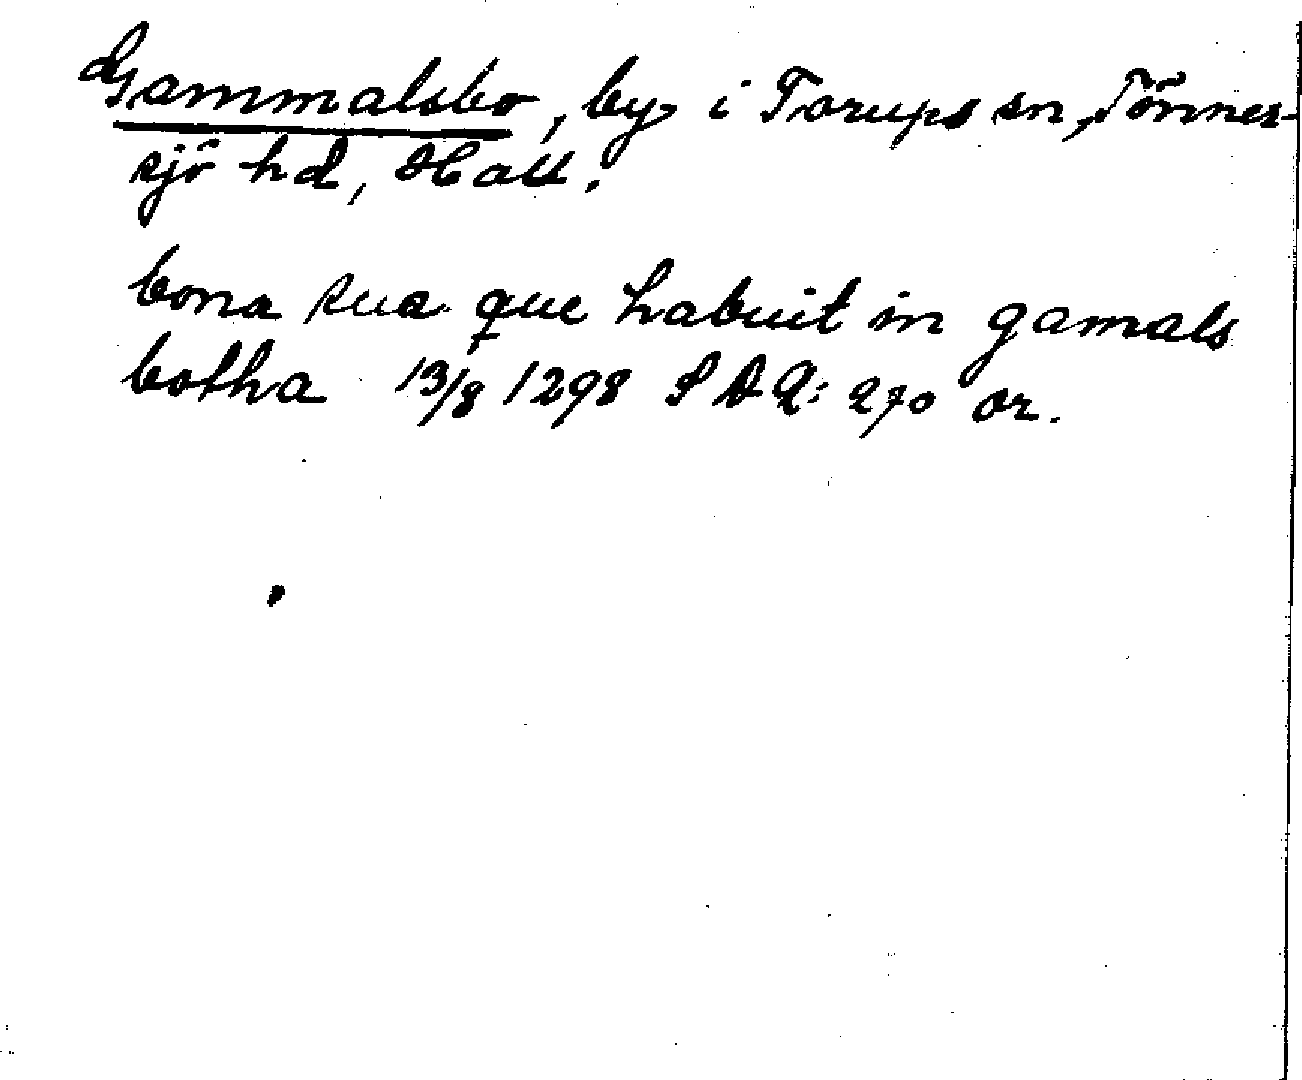 Gammalsbo, by i Torups sn, Tönner-
sjö hd, Hall.
bona sua que habuit in gamals
botha 13/8 1298 SD 2: 270 or.